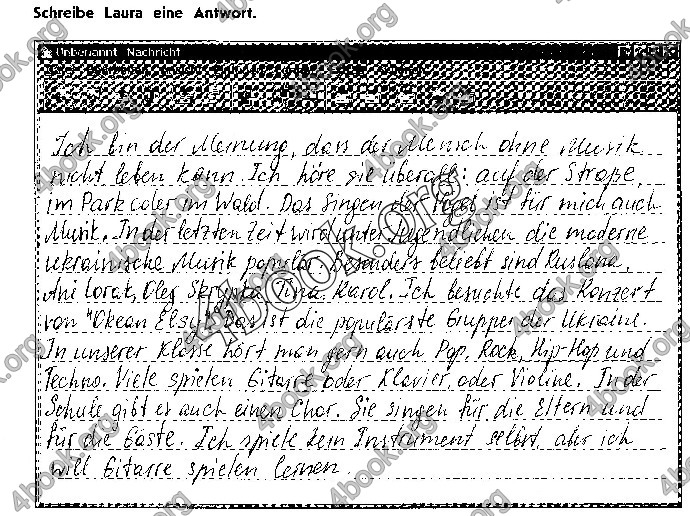 Schreibe Laura eine Antwort.
Unbenannt - Nachricht
Ich bin der Meinung, dass der Mensch ohne Musik
nicht leben kann. Ich höre sie überall: auf der Straße,
im Park oder im Wald. Das Singen der Vögel ist für mich auch
Musik. In der letzten Zeit wird unter Jugendlichen die moderne
ukrainische Musik populär. Besonders beliebt sind Ruslana,
Ani Lorak, Oleg Skrypka, Tina Karol. Ich besuchte das Konzert
von "Okean Elsy". Das ist die populärste Gruppe der Ukraine.
In unserer Klasse hört man gern auch Pop, Rock, Hip-Hop und
Techno. Viele spielen Gitarre oder Klavier, oder Violine. In der
Schule gibt es auch einen Chor. Sie singen für die Eltern und
für die Gäste. Ich spiele kein Instrument selbst, aber ich
will Gitarre spielen lernen.
4book.org